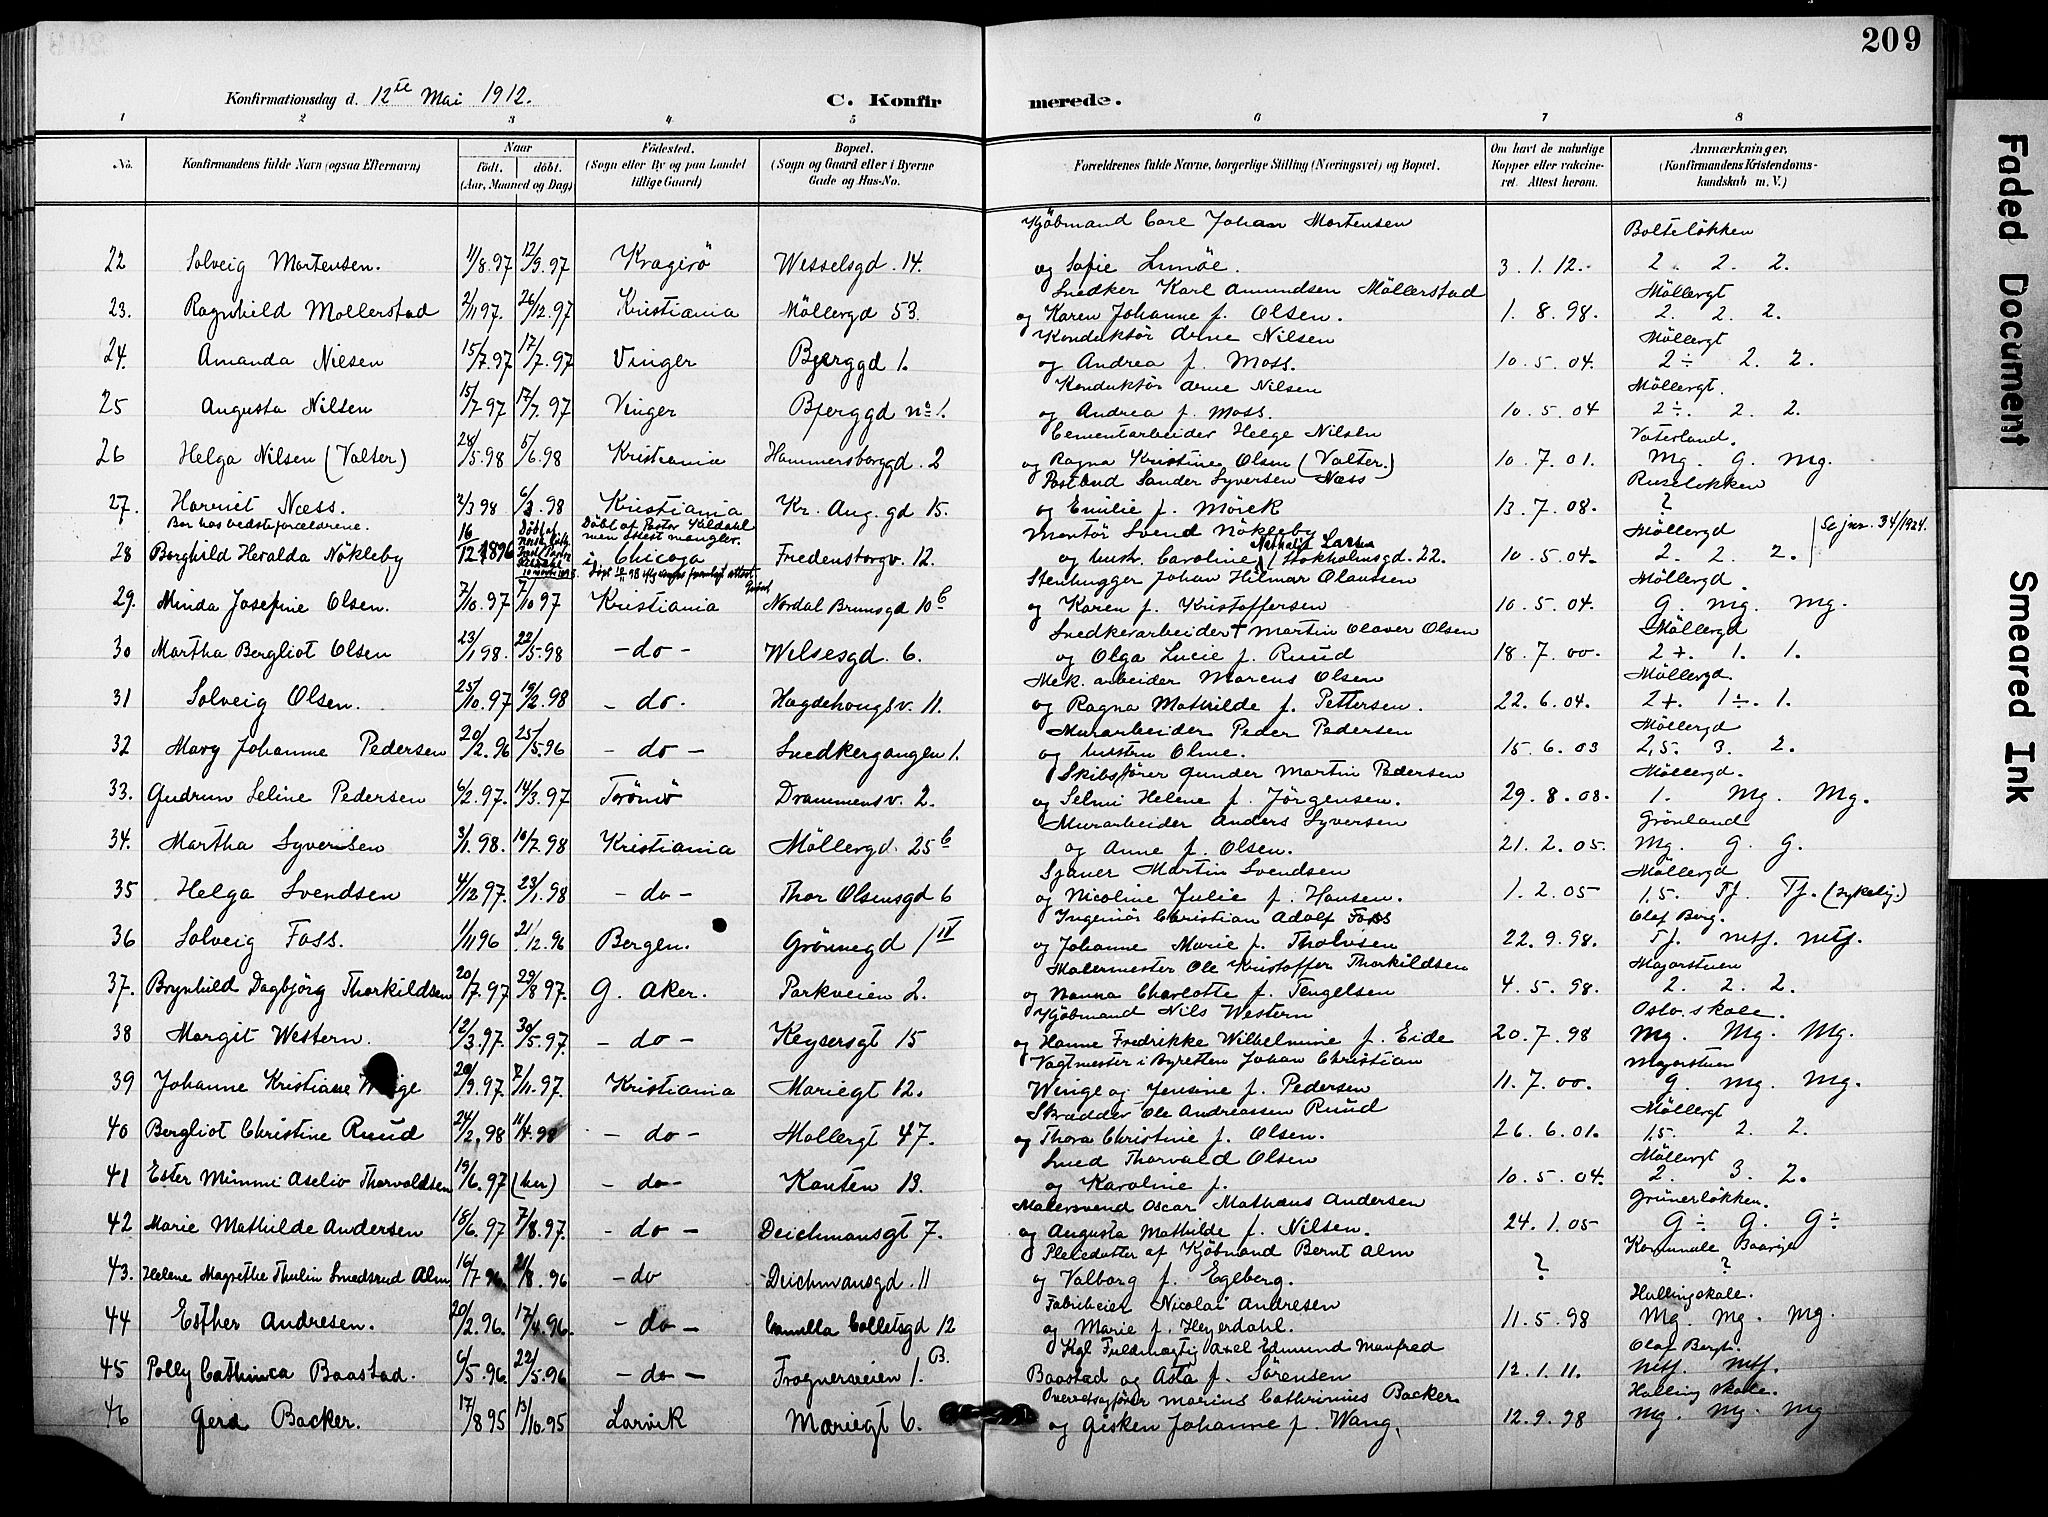 209
Konfirmationsdag d. 12te Mai 1912. C. Konfirmerede.
1 2 3 4 5 6 7 8
No. Konfirmandens fulde Navn (ogsaa Efternavn) Naar født. døbt. (Aar, Maaned og Dag) Fødested. (Sogn eller By og paa Landet tillige Gaard) Bopæl. (Sogn og Gaard eller i Byerne Gade og Hus-No. Forældrenes fulde Navne, borgerlige Stilling (Næringsvei) og Bopæl. Om havt de naturlige Kopper eller vakcineret. Attest herom. Anmærkninger, (Konfirmandens Kristendomskundskab m. V.)
Kjöbmand Carl Johan Mortensen Bolteløkken
22 Solveig Mortensen. 11/8.97 12/9.97 Kragerö Wesselsgd. 14. og Sofie 3.1.12. 2. 2. 2.
Snedker Karl Amundsen Möllerstad Möllergt
23. Ragnhild Möllerstad 2/11 97. 26/12.97 Kristiania Möllergd 53. og Karen Johanne f. Olsen. 1.8.98. 2. 2. 2.
Konduktör Arne Nilsen Möllergt
24. Amanda Nilsen 15/7.97 17/7.97 Vinger Bjerggd 1. og Andrea f. Moss. 10.5.04. 2÷ 2. 2.
Konduktör Arne Nilsen Möllergt.
25 Augusta Nilsen 15/7 97 17/7.97 Vinger Bjerggd no 1. og Andrea f. Moss. 10.5.04 2÷. 2. 2.
Cementarbeider Helge Nilsen Vaterland.
26 Helga Nilsen (Valter) 28/5.98 5/6.98 Kristiania Hammersborggd. 2 og Ragna Kristine Olsen (Valter.) 10.7.01. Mg. G. Mg.
Postbud Sander Syversen Næss Ruseløkken
27. Harriet Næss. 2/3 98 6/3.98 Kristiania Kr. Aug. gd 15. og Emilie f. Mörck 13.7.08. ?
Bor hos bedsteforældrene. Döbt af Pastor Kildahl men attest mangler. Montör Svend Nökleby Möllergd Se jnr. 34/1924.
28 Borghild Heralda Nökleby 16/12 1896 i Chicago Fredensborgv. 12. og hustr. Caroline Nathalie Larsen (Stokholmsgd. 22. 10.5.04. 2. 2. 2.
Stenhugger Johan Hilmar Olaussen Möllergd.
29. Minda Josefine Olsen. 7/10.97 7/10 97 Kristiania Nordal Brunsgd 10 b og Karen f. Kristoffersen 10.5.04. G. Mg. Mg.
Snedkerarbeider † Martin Olaver Olsen Möllergd
30 Martha Bergliot Olsen 23/1 98. 22/5.98 – do – Wilsesgd. 6. og Olga Lucie f. Ruud 18.7.00. 2+. 1. 1.
Mek. arbeider Marcus Olsen Möllergd.
31 Solveig Olsen. 25/10.97 19/2.98 – do. Hagdehougsv. 11. og Ragna Mathilde f. Pettersen. 22.6.04. 2+. 1÷. 1.
Murarbeider Peder Pedersen Möllergd
32 Mary Johanne Pedersen 20/2.96 25/5.96 – do – Snedkergangen 1. og hustru Oline. 15.6.03 2,5. 3. 2.
Skibsfører Gunder Martin Pedersen Möllergd.
33. Gudrun Seline Pedersen 6/2.97. 14/3.97 Tromö Drammensv. 2. og Selmi Helene f. Jörgensen. 29.8.08. 1. Mg. Mg.
Murarbeider Anders Syversen Grönland
34. Martha Syversen 3/1.98. 10/7.98 Kristiania Möllergd. 25 b og Anne f. Olsen. 21.2.05. Mg. G. G.
Sjauer Martin Svendsen Möllergd
35 Helga Svendsen 4/12 97. 23/1.98 – do – Thor Olsensgd 6 og Nicoline Julie f. Hansen. 1.2.05 1,5. Tf. Tf. (sykelig.)
Ingeniör Christian Adolf Foss Olaf Berg.
36 Solveig Foss. 1/11 96 21/12.96 Bergen. Grönnegd 1 IV og Johanne Marie f. Tholvsen 22.9.98. Tf. Mtf. Mtf.
Malermester Ole Kristoffer Thorkildsen Majorstuen
37. Brynhild Dagbjörg Thorkildsen 20/7.97 29/8 97. G. Aker. Parkveien 2. og Nanna Charlotte f. Tengelsen 4.5.98. 2. 2. 2.
Kjöbmand Nils Western Oslo skole.
38 Margit Western. 12/3.97. 30/5.97. – do – Keysersgt 15 og Hanne Fredrikke Wilhelmine f. Eide 20.7.98 Mg. Mg. Mg.
Vagtmester i Byretten Johan Christian Majorstuen
39 Johanne Kristiane 20/9.97. 7/11.97. Kristiania Mariegt 12. Winge og Jensine f. Pedersen 11.7.00. G. Mg. Mg.
Skrædder Ole Andreassen Ruud Möllergt
40 Bergliot Christine Ruud 24/2.98 11/4.98 – do – Möllergt 47. og Thora Christine f. Olsen. 26.6.01. 1,5. 2. 2.
Smed Thorvald Olsen Möllergt
41 Ester Mimmi Aselio Thorvaldsen 19/6.97 (her) – do – Kanten 13. og Karoline f. 10.5.04. 2. 3. 2.
Malersvend Oscar Mathæus Andersen Grünerløkken.
42 Marie Mathilde Andersen 18/6.97 7/8.97. – do – Deichmansgt 7. og Augusta Mathilde f. Nilsen. 24.1.05 G÷ G. G÷
Pleiedatter af Kjöbmand Bernt Alm Komunale
43. Helene Magrethe Thulin Smedsrud Alm 16/7 96 21/8.96 – do Deichmansgd. 11 og Valborg f. Egeberg. ? ?
Fabrikeier Nicolai Andresen Hallingskole.
44 Esther Andresen. 20/2.96. 17/4.96. – do – Camilla Colletsgd 12 og Marie f. Heyerdahl. 11.5.98 Mg. Mg. Mg.
Kgl Fuldmægtig Axel Edmund Manfred Olaf Bergt.
45 Polly Cathinca Baastad. 6/5.96. 22/5.96 – do – Frognerveien 1. B. Baastad og Asta f. Sörensen 12.1.11. Mtf. Mtf.
Overretssagförer Marius Cathrinius Backer Halling skole.
46 Gerd Backer. 17/8 95 13/10.95 Larvik Mariegt 6. og Gisken Johanne f. Wang. 12.9.98 Mg. Mg. Mg
Faded Document
Smeared Ink